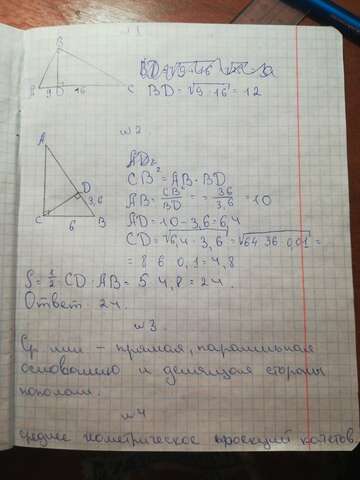 1
B
A 9 D 16 C
BD = √9·16 = 12
№2.
A
D
3,6
C 6 B
AD=
CB² = AB · BD
AB = CB²/BD = 36/3,6 = 10
AD = 10 - 3,6 = 6,4
CD = √6,4 · 3,6 = √64 36 0,01 =
= 8 6 0,1 = 4,8
S = 1/2 · CD · AB = 5 4,8 = 24.
Ответ 24.
№3.
Ср. лин - прямая, паралельная
основанию и делящая стороны
пополам.
№4
среднее геометрическое проекций катетов